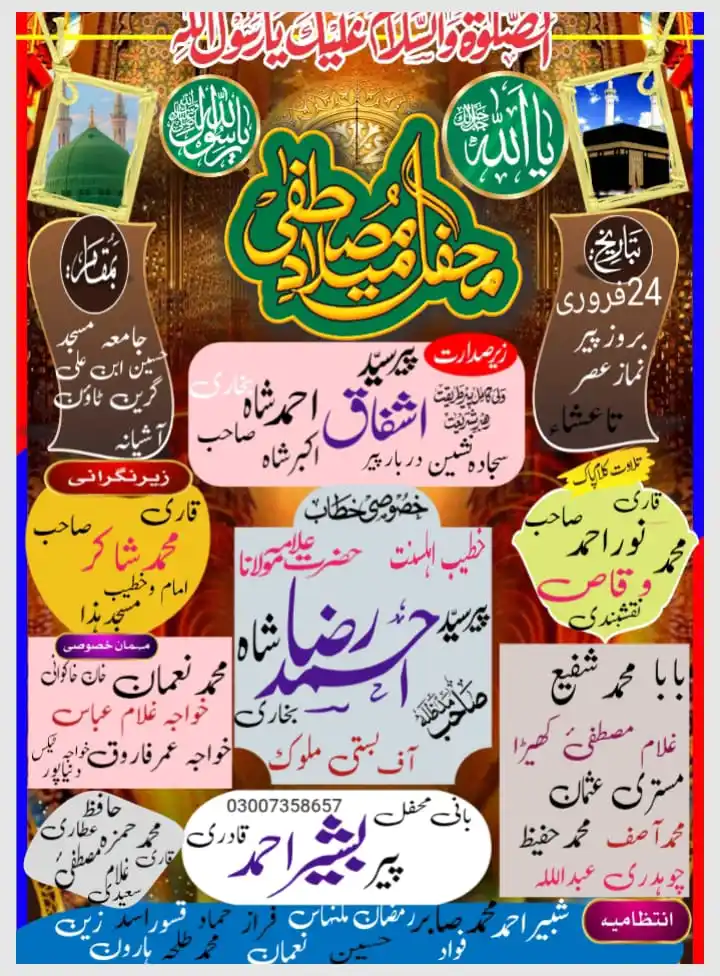 الصلوٰۃ والسلام علیک یا رسول اللہ
یا اللہ جل جلالہ
یا رسول اللہ
محفل میلاد مصطفیٰ
بتاریخ:
24 فروری
بروز پیر
نماز عصر
تا عشاء
بمقام:
جامعہ مسجد
حسین ابن علی
گرین ٹاؤن
آشیانہ
زیر صدارت
ولی کامل پیر طریقت
رہبر شریعت
پیر سید
اشفاق احمد شاہ بخاری
صاحب
سجادہ نشین دربار پیر اکبر شاہ
تلاوت کلام پاک
قاری
محمد نور احمد صاحب
وقاص
نقشبندی
خصوصی خطاب
خطیب اہلسنت حضرت علامہ مولانا
پیر سید
احمد رضا شاہ
بخاری
صاحب مدظلہ
آف بستی ملوک
زیر نگرانی
قاری
محمد شاکر صاحب
امام و خطیب
مسجد ہذا
مہمان خصوصی
محمد نعمان خان خاکوانی
خواجہ غلام عباس
خواجہ عمر فاروق خواجہ ٹیکس
دنیاپور
بابا محمد شفیع
غلام مصطفیٰ کھیڑا
مستری عثمان
محمد آصف محمد حفیظ
چوہدری عبداللہ
03007358657
بانی محفل
پیر بشیر احمد قادری
حافظ
محمد حمزہ عطاری
قاری غلام مصطفیٰ
سعیدی
انتظامیہ
شبیر احمد محمد صابر رمضان ملنہاس فراز حماد قسور اسد زین
فواد حسین نعمان محمد طلحہ ہارون